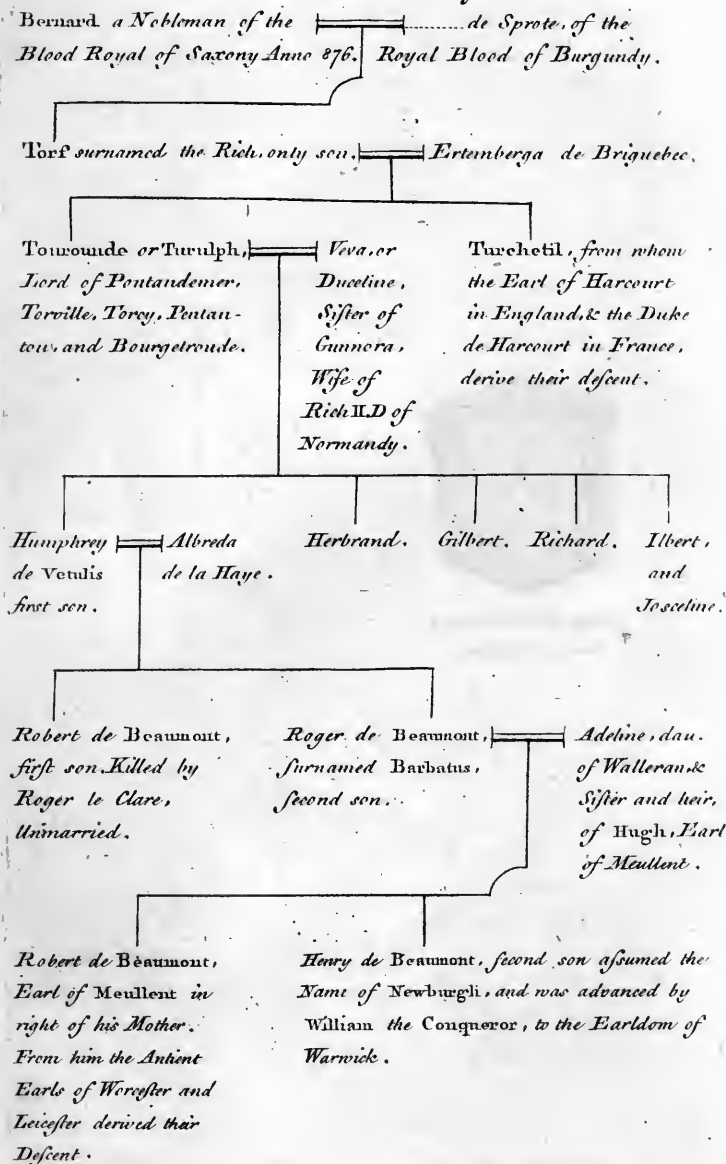 Bernard a Nobleman of the
Blood Royal of Saxony Anno 876.
........de Sprote, of the
Royal Blood of Burgundy.
Torf surnamed the Rich, only son.
Ertemberga de Briquebec.
Tourounde or Turulph,
Lord of Pontandemer,
Torville, Torcy, Pontan-
tou, and Bourgetroude.
Veva, or
Duceline,
Siſter of
Gunnora,
Wife of
Rich II.D of
Normandy.
Turchetil, from whom
the Earl of Harcourt
in England, & the Duke
de Harcourt in France,
derive their deſcent.
Humphrey
de Vetulis
first son.
Albreda
de la Haye.
Herbrand.
Gilbert.
Richard.
Ilbert,
and
Josceline.
Robert de Beaumont,
firſt son. Killed by
Roger le Clare,
Unmarried.
Roger de Beaumont,
ſurnamed Barbatus,
ſecond son.
Adeline, dau.
of Walleran, &
Siſter and heir,
of Hugh, Earl
of Meullent.
Robert de Beaumont,
Earl of Meullent in
right of his Mother.
From him the Antient
Earls of Worceſter and
Leiceſter derived their
Deſcent.
Henry de Beaumont, ſecond son aſsumed the
Name of Newburgh, and was advanced by
William the Conqueror, to the Earldom of
Warwick.